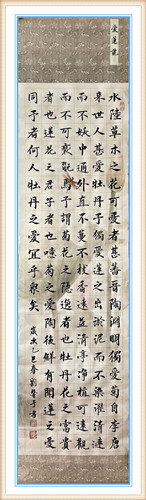 愛蓮說
水陸草木之花可愛者甚蕃晉陶淵明獨愛菊自李唐
来世人甚愛牡丹予獨愛蓮之出淤泥而不染濯清漣
而不妖中通外直不蔓不枝香遠益清亭淨植可遠觀
而不可褻玩焉予謂菊花之隱逸者也牡丹花之富貴
者也蓮花之君子者也噫菊之愛陶後鮮有聞蓮之愛
同予者何人牡丹之愛宜乎衆矣
歲次乙巳春劉